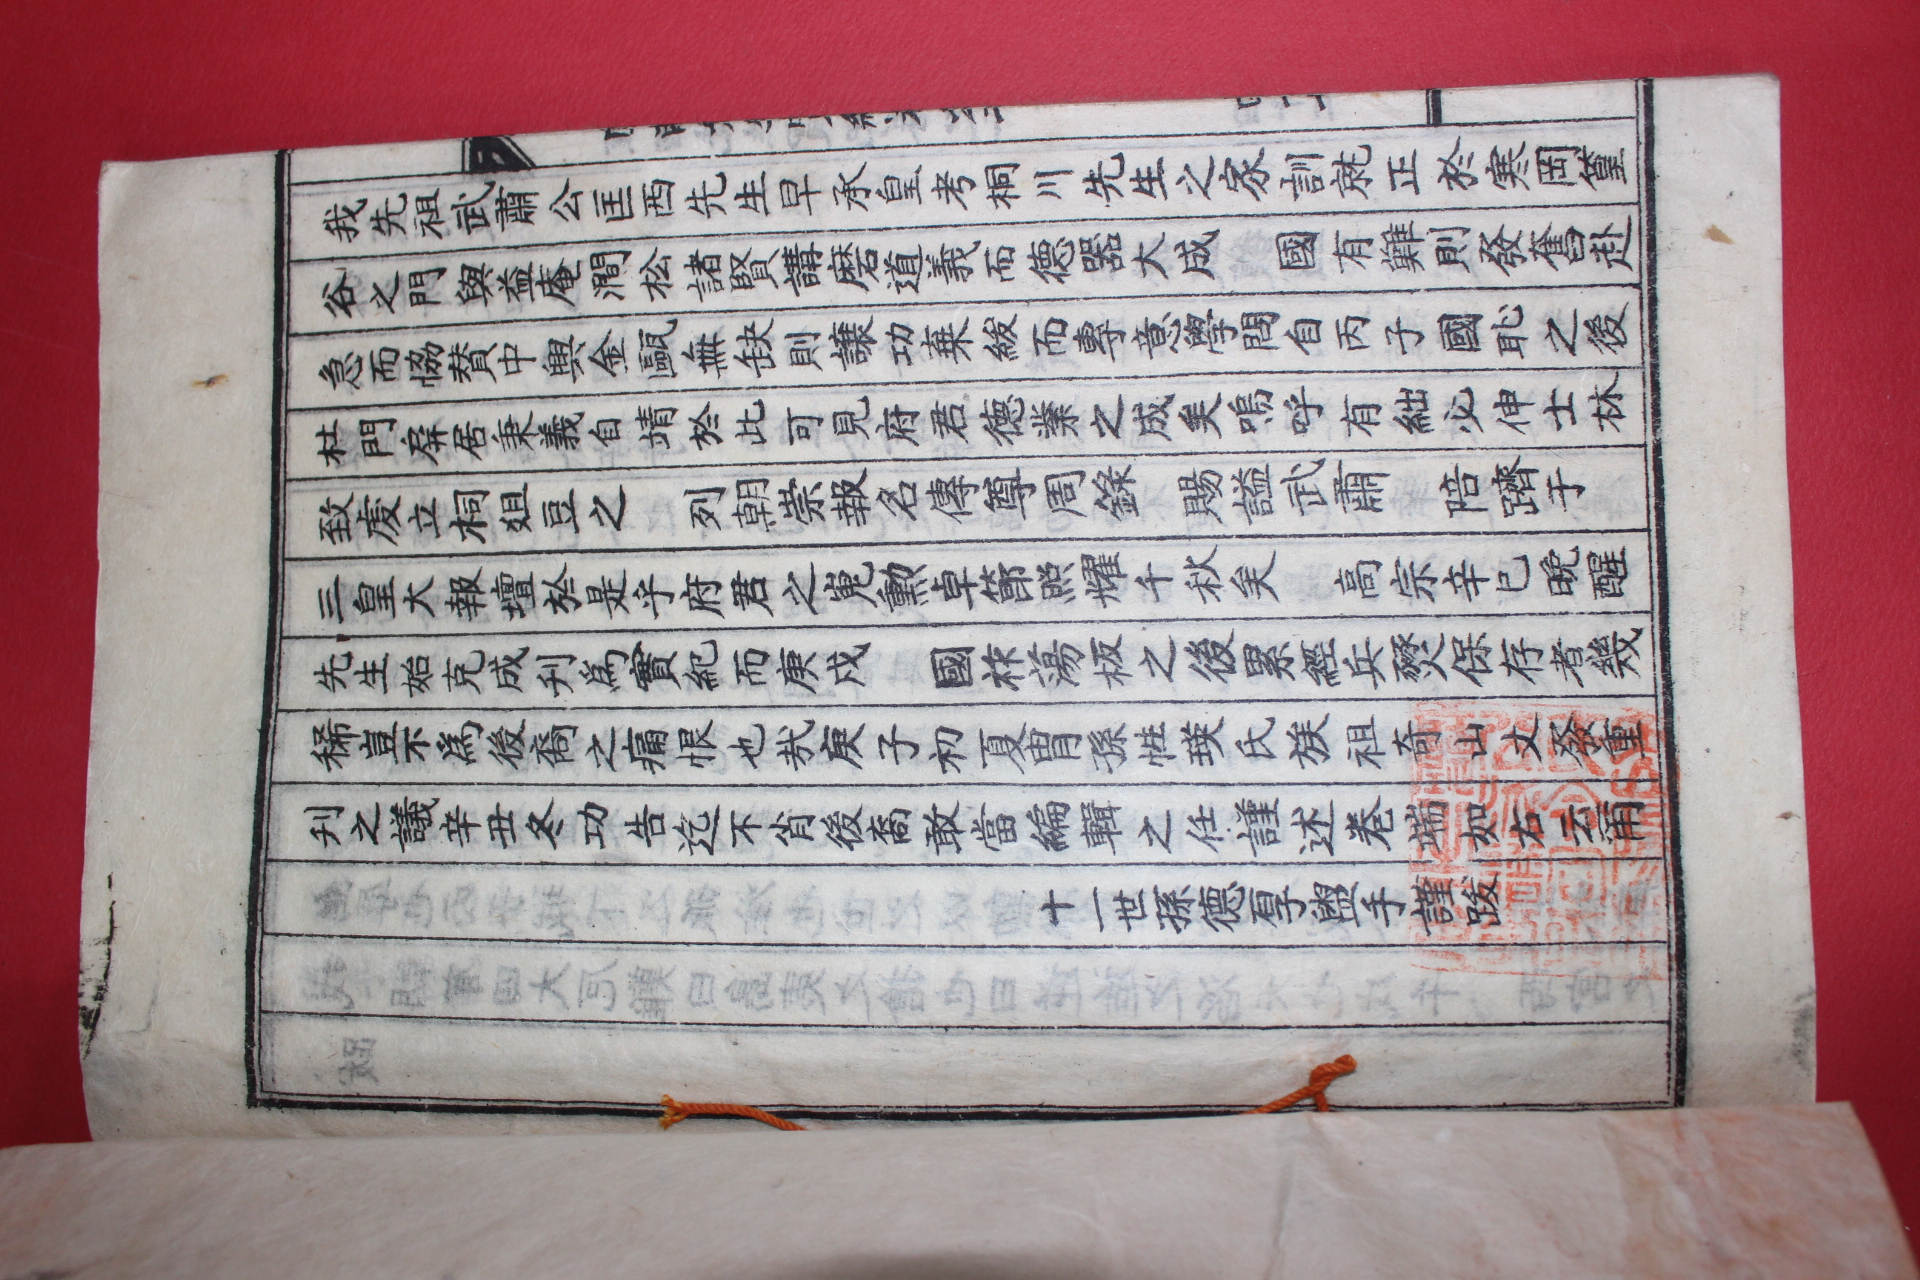 我先祖武肅公匡西先生早承皇考桐川先生之家訓就正於寒岡篁
谷之門與益庵澗松諸賢講磨道義而德器大成 國有難則發奮赴
急而協贊中興金甌無缺則讓功棄紱而專意學問自丙子國恥之後
杜門屏居秉義自靖於此可見府君德業之成矣嗚呼有絀必伸士林
致虔立祠俎豆之 列朝崇報名傳尊周錄 賜謚武肅 陪躋于
三皇大報壇於是乎府君之嵬勳卓節照耀千秋矣 高宗辛巳晩醒
先生始克成刋爲實紀而庚戌 國祚蕩板之後累經兵燹保存者幾
稀豈不爲後裔之痛恨也哉庚子初夏胄孫性瑛氏族祖奇山丈發重
刋之議辛丑冬功告迄不肖後裔敢當編輯之任謹述卷端如右云甭
十一世孫德孚盥手謹跋